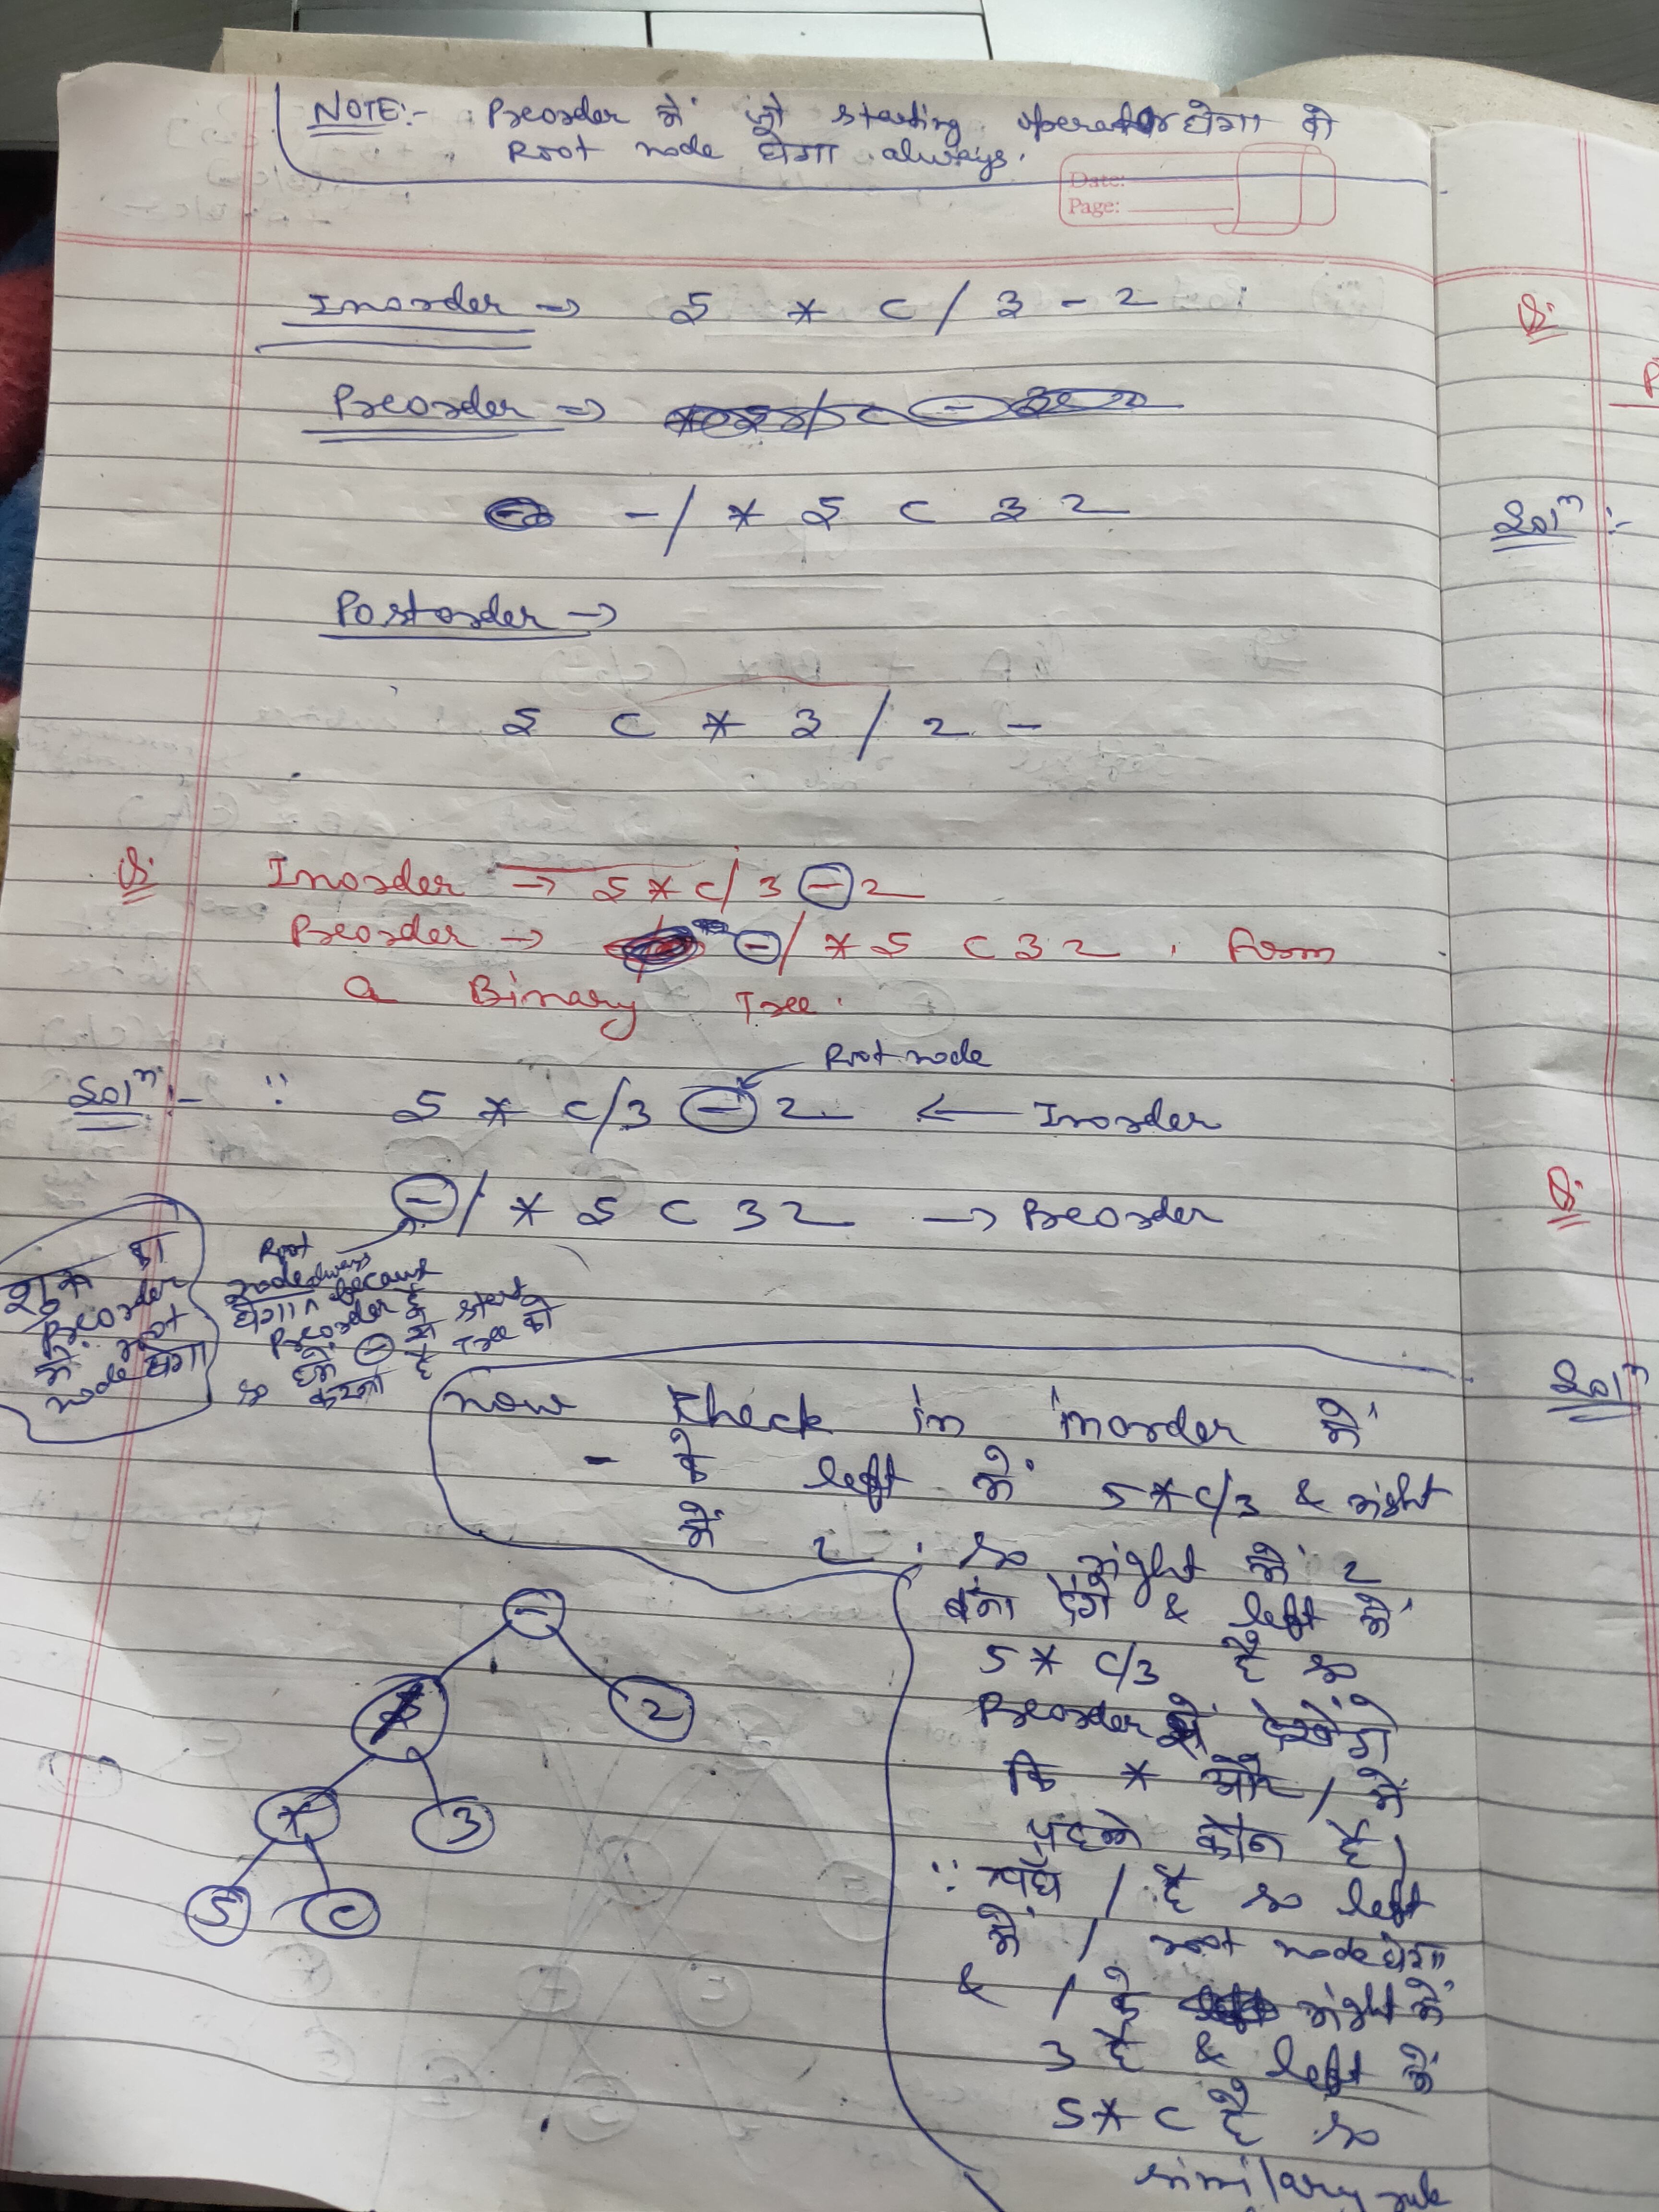 NOTE:- Preorder में जो starting operator होगा वो
Root node होगा always.
Date:
Page:
Inorder → 5 * C / 3 - 2
Preorder →
- / * 5 C 3 2
Postorder →
5 C * 3 / 2 -
Q: Inorder → 5 * C / 3 - 2
Preorder → - / * 5 C 3 2 . Form
a Binary Tree.
Root node
Solⁿ:- ∵ 5 * C / 3 - 2 ← Inorder
- / * 5 C 3 2 → Preorder
शुरू का
Preorder
में root
node होगा
Root
node always
होगा because
Preorder है
so हमें - से start
करना है Tree को
now check in inorder में
- के left में 5 * C/3 & right
में 2 . so right में 2
बना देंगे & left में
5 * C/3 है so
Preorder से देखेंगे
कि * और / में
पहले कौन है।
∵ यहाँ / है so left
में / root node होगा
& / के right में
3 है & left में
5 * C है so
similary sub
-
/ 2
* 3
5 C
Q:
Solⁿ:-
Q:
Solⁿ